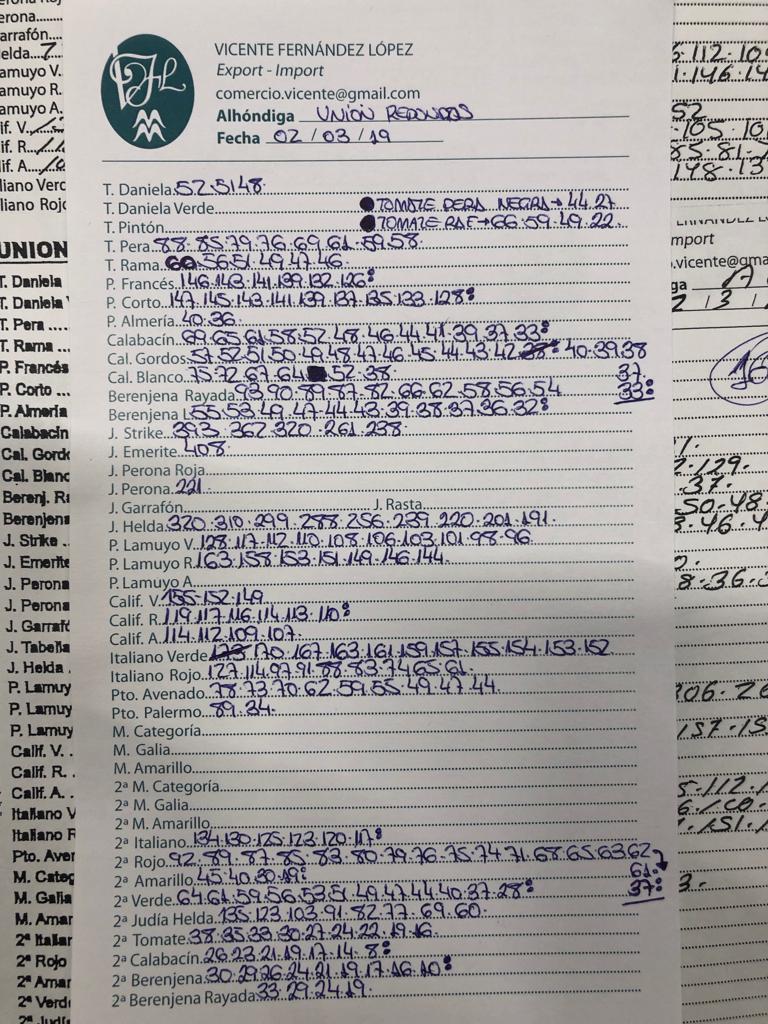 VICENTE FERNÁNDEZ LÓPEZ
Export - Import
comercio.vicente@gmail.com
Alhóndiga UNION REDONDOS
Fecha 02/03/19
T. Daniela 52.51.48.
T. Daniela Verde TOMATE PERA NEGRA→44.27
T. Pintón TOMATE RAF→66.59.49.22.
T. Pera 88.85.79.76.69.61.59.58.
T. Rama 60.56.51.49.47.46.
P. Francés 146.143.141.139.132.126:
P. Corto 147.145.143.141.139.137.135.133.128:
P. Almería 40.36.
Calabacín 69.65.61.58.52.48.46.44.41.39.37.33:
Cal. Gordos 57.52.51.50.49.48.47.46.45.44.43.42.38: 40.39.38
Cal. Blanco 75.72.67.64 52.38. 37.
Berenjena Rayada 93.90.89.87.82.66.62.58.56.54 33:
Berenjena L 55.53.49.47.44.43.39.38.37.36.32:
J. Strike 393.362.320.261.238.
J. Emerite 408.
J. Perona Roja
J. Perona 221.
J. Garrafón J. Rasta
J. Helda 320.310.299.288.256.239.220.201.191.
P. Lamuyo V. 128.117.112.110.108.106.103.101.98.96.
P. Lamuyo R. 163.158.153.151.149.146.144.
P. Lamuyo A.
Calif. V. 155.152.149.
Calif. R. 119.117.116.114.113.110:
Calif. A. 114.112.109.107.
Italiano Verde 173 170.167.163.161.159.157.155.154.153.152
Italiano Rojo 127.114.97.91.88.83.74.65.61.
Pto. Avenado 78.73.70.62.59.55.49.47.44.
Pto. Palermo 89.34.
M. Categoría
M. Galia
M. Amarillo
2ª M. Categoría
2ª M. Galia
2ª M. Amarillo
2ª Italiano 134.130.125.123.120.117:
2ª Rojo 92.89.87.85.83.80.79.76.75.74.71.68.65.63.62
2ª Amarillo 45.40.30.19: 61.
2ª Verde 64.61.59.56.53.51.49.47.44.40.37.28: 37:
2ª Judía Helda 135.123.103.91.82.77.69.60.
2ª Tomate 38.35.33.30.27.24.22.19.16.
2ª Calabacín 26.23.21.19.17.14.8:
2ª Berenjena 30.29.26.24.21.19.17.16.10:
2ª Berenjena Rayada 33.29.24.19.
UNION
T. Daniela
T. Daniela
T. Pera
T. Rama
P. Francés
P. Corto
P. Almería
Calabacín
Cal. Gord
Cal. Blanc
Berenj. R
Berenjena
J. Strike
J. Emerite
J. Perona
J. Perona
J. Garraf
J. Tabella
J. Helda
P. Lamuy
P. Lamuy
P. Lamuy
Calif. V.
Calif. R.
Calif. A.
Italiano V
Italiano R
Pto. Aven
M. Categ
M. Galia
M. Amar
2ª Italian
2ª Rojo
2ª Amar
2ª Verd
2ª Judí